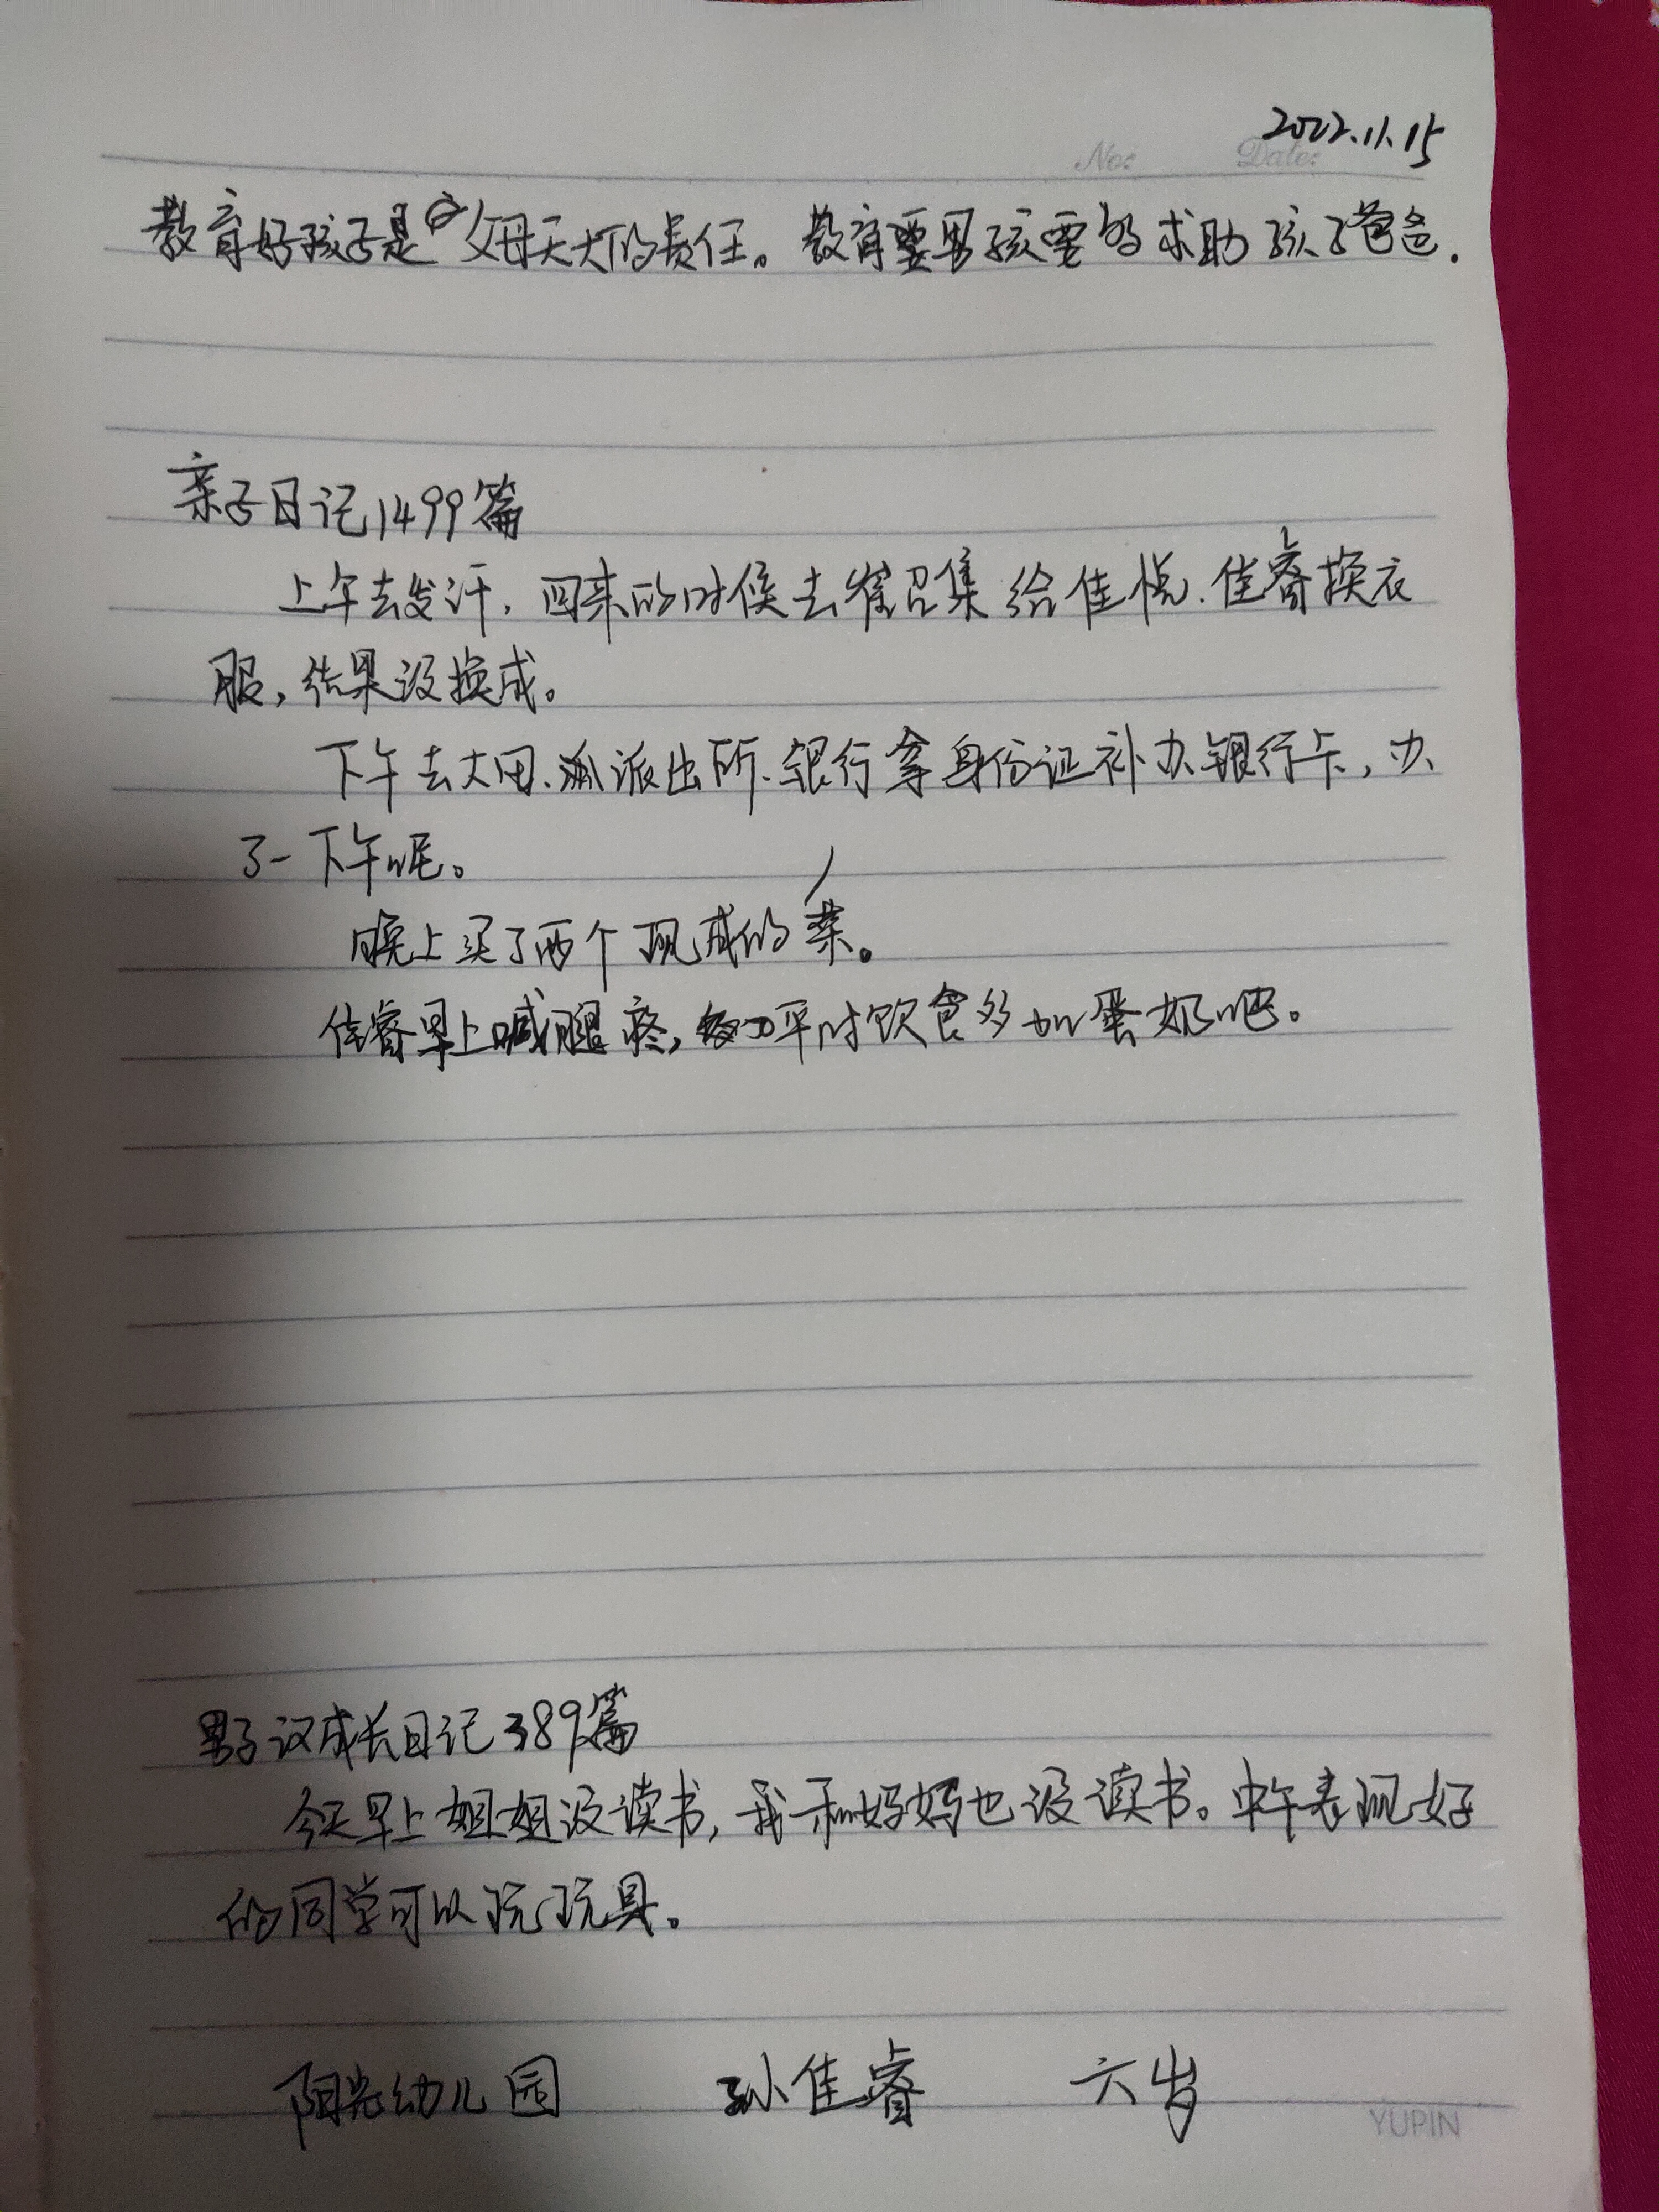 2022.11.15
No: Date:
教育好孩子是父母天大的责任。教育男孩要的求助孩子爸爸.
亲子日记1499篇
上午去发汗,回来的时候去崔召集给佳悦.佳睿换衣
服,结果没换成。
下午去大田、派出所.银行拿身份证补办银行卡,办
了一下午呢。
晚上买了两个现成的菜。
佳睿早上喊腿疼,平时饮食多加蛋奶吧。
男子汉成长日记389篇
今天早上姐姐没读书,我和妈妈也没读书。中午表现好
的同学可以玩玩具。
阳光幼儿园 孙佳睿 六岁
YUPIN